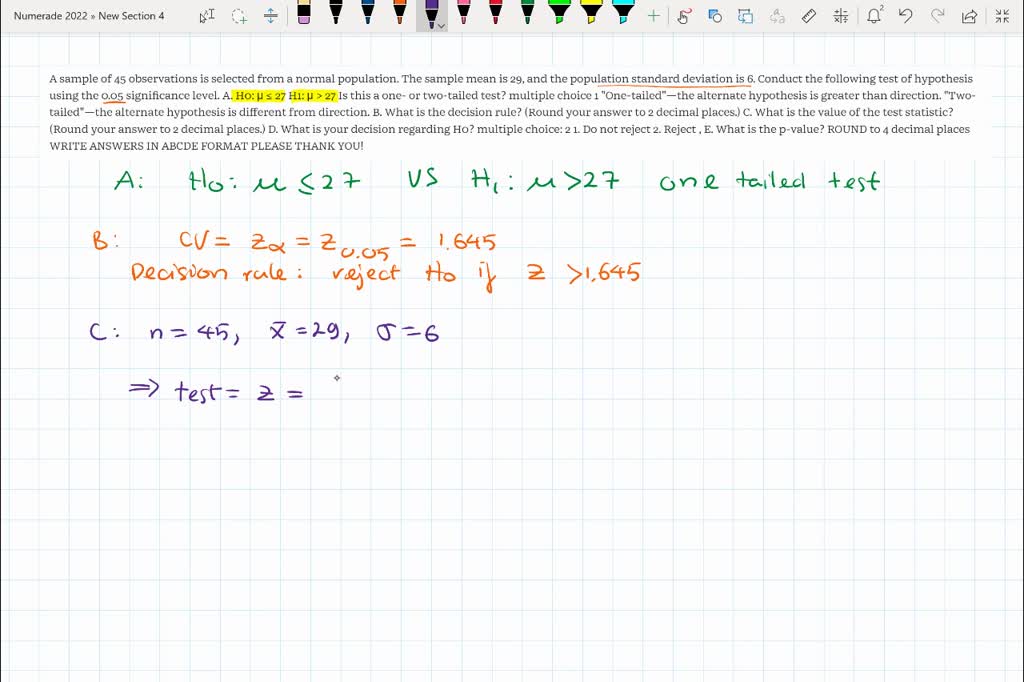 Numerade 2022 » New Section 4
A sample of 45 observations is selected from a normal population. The sample mean is 29, and the population standard deviation is 6. Conduct the following test of hypothesis
using the 0.05 significance level. A. H0: μ ≤ 27 H1: μ > 27 Is this a one- or two-tailed test? multiple choice 1 "One-tailed"—the alternate hypothesis is greater than direction. "Two-
tailed"—the alternate hypothesis is different from direction. B. What is the decision rule? (Round your answer to 2 decimal places.) C. What is the value of the test statistic?
(Round your answer to 2 decimal places.) D. What is your decision regarding Ho? multiple choice: 2 1. Do not reject 2. Reject , E. What is the p-value? ROUND to 4 decimal places
WRITE ANSWERS IN ABCDE FORMAT PLEASE THANK YOU!
A: H0: μ ≤ 27 VS H1: μ > 27 one tailed test
B: CV = zα = z0.05 = 1.645
Decision rule: reject H0 if z > 1.645
C: n = 45, x̄ = 29, σ = 6
⇒ test = z =